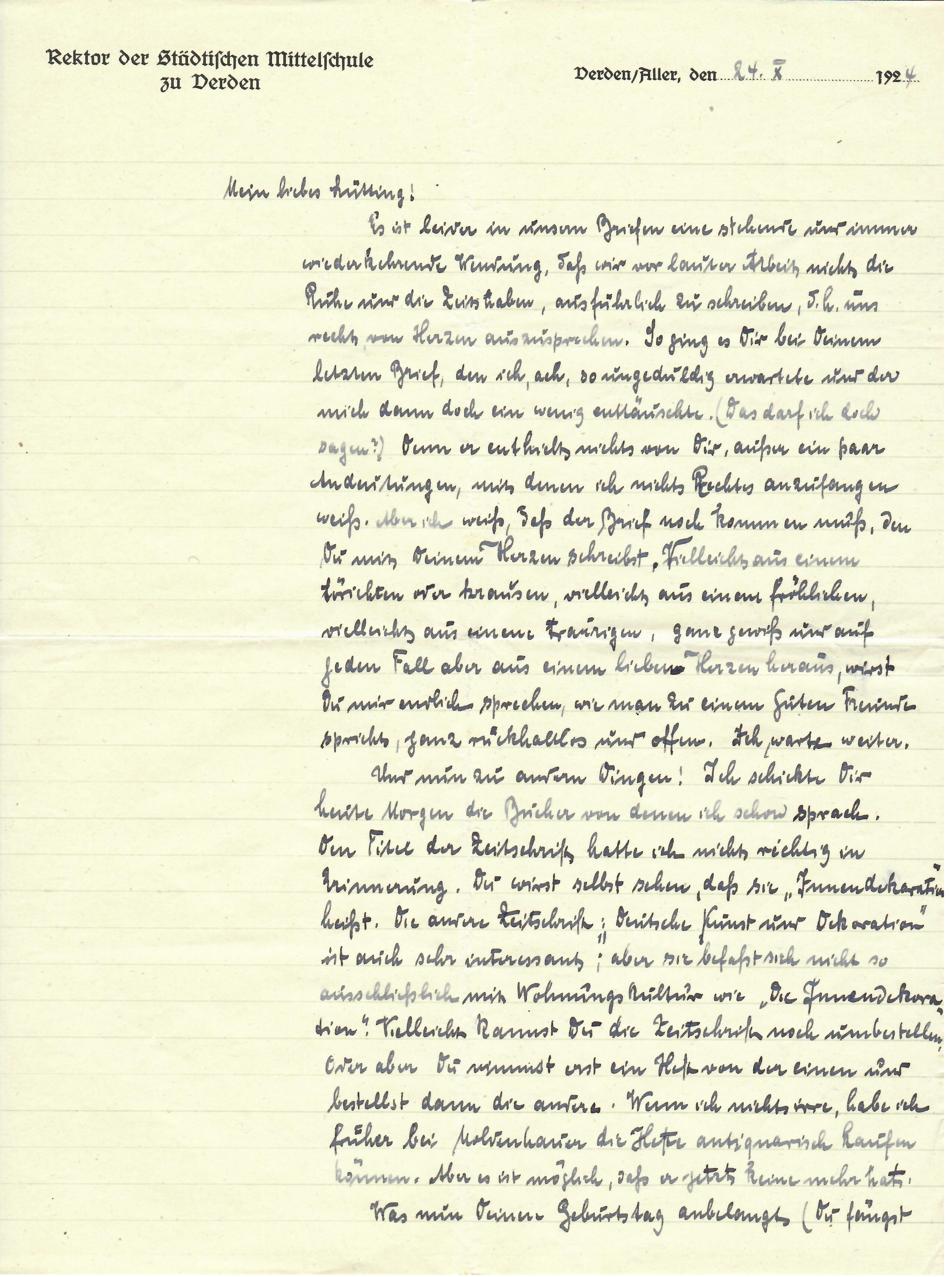 Rektor der Städtischen Mittelschule
zu Verden
Verden/Aller, den 24. X 1924
Mein liebes Lütting!
Es ist leider in unsern Briefen eine stehende und immer
wiederkehrende Wendung, daß wir vor lauter Arbeit nicht die
Ruhe und die Zeit haben, ausführlich zu schreiben, d.h. uns
recht von Herzen auszusprechen. So ging es Dir bei Deinem
letzten Brief, den ich, ach, so ungeduldig erwartete und der
mich dann doch ein wenig enttäuschte. (Das darf ich doch
sagen?) Denn er enthielt nichts von Dir, außer ein paar
Andeutungen, mit denen ich nichts Rechtes anzufangen
weiß. Aber ich weiß, daß der Brief noch kommen muß, den
Du mit Deinem Herzen schreibst. Vielleicht aus einem
törichten oder krausen, vielleicht aus einem fröhlichen,
vielleicht aus einem traurigen, ganz gewiß und auf
jeden Fall aber aus einem lieben Herzen heraus, wirst
Du mir endlich sprechen, wie man zu einem guten Freunde
spricht, ganz rückhaltlos und offen. Ich warte weiter.
Und nun zu andern Dingen! Ich schickte Dir
heute Morgen die Bücher von denen ich schon sprach.
Den Titel der Zeitschrift hatte ich nicht richtig in
Erinnerung. Du wirst selbst sehen, daß sie „Innendekoration
heißt. Die andere Zeitschrift: „Deutsche Kunst und Dekoration"
ist auch sehr interessant; aber sie befaßt sich nicht so
ausschließlich mit Wohnungskultur wie „Die Innendekora
tion". Vielleicht kannst Du die Zeitschrift noch umbestellen,
Oder aber Du nimmst erst ein Heft von der einen und
bestellst dann die andere. Wenn ich nicht irre, habe ich
früher bei Moldenhauer die Hefte antiquarisch kaufen
können. Aber es ist möglich, daß er jetzt keine mehr hat.
Was nun Deinen Geburtstag anbelangt (Du fängst